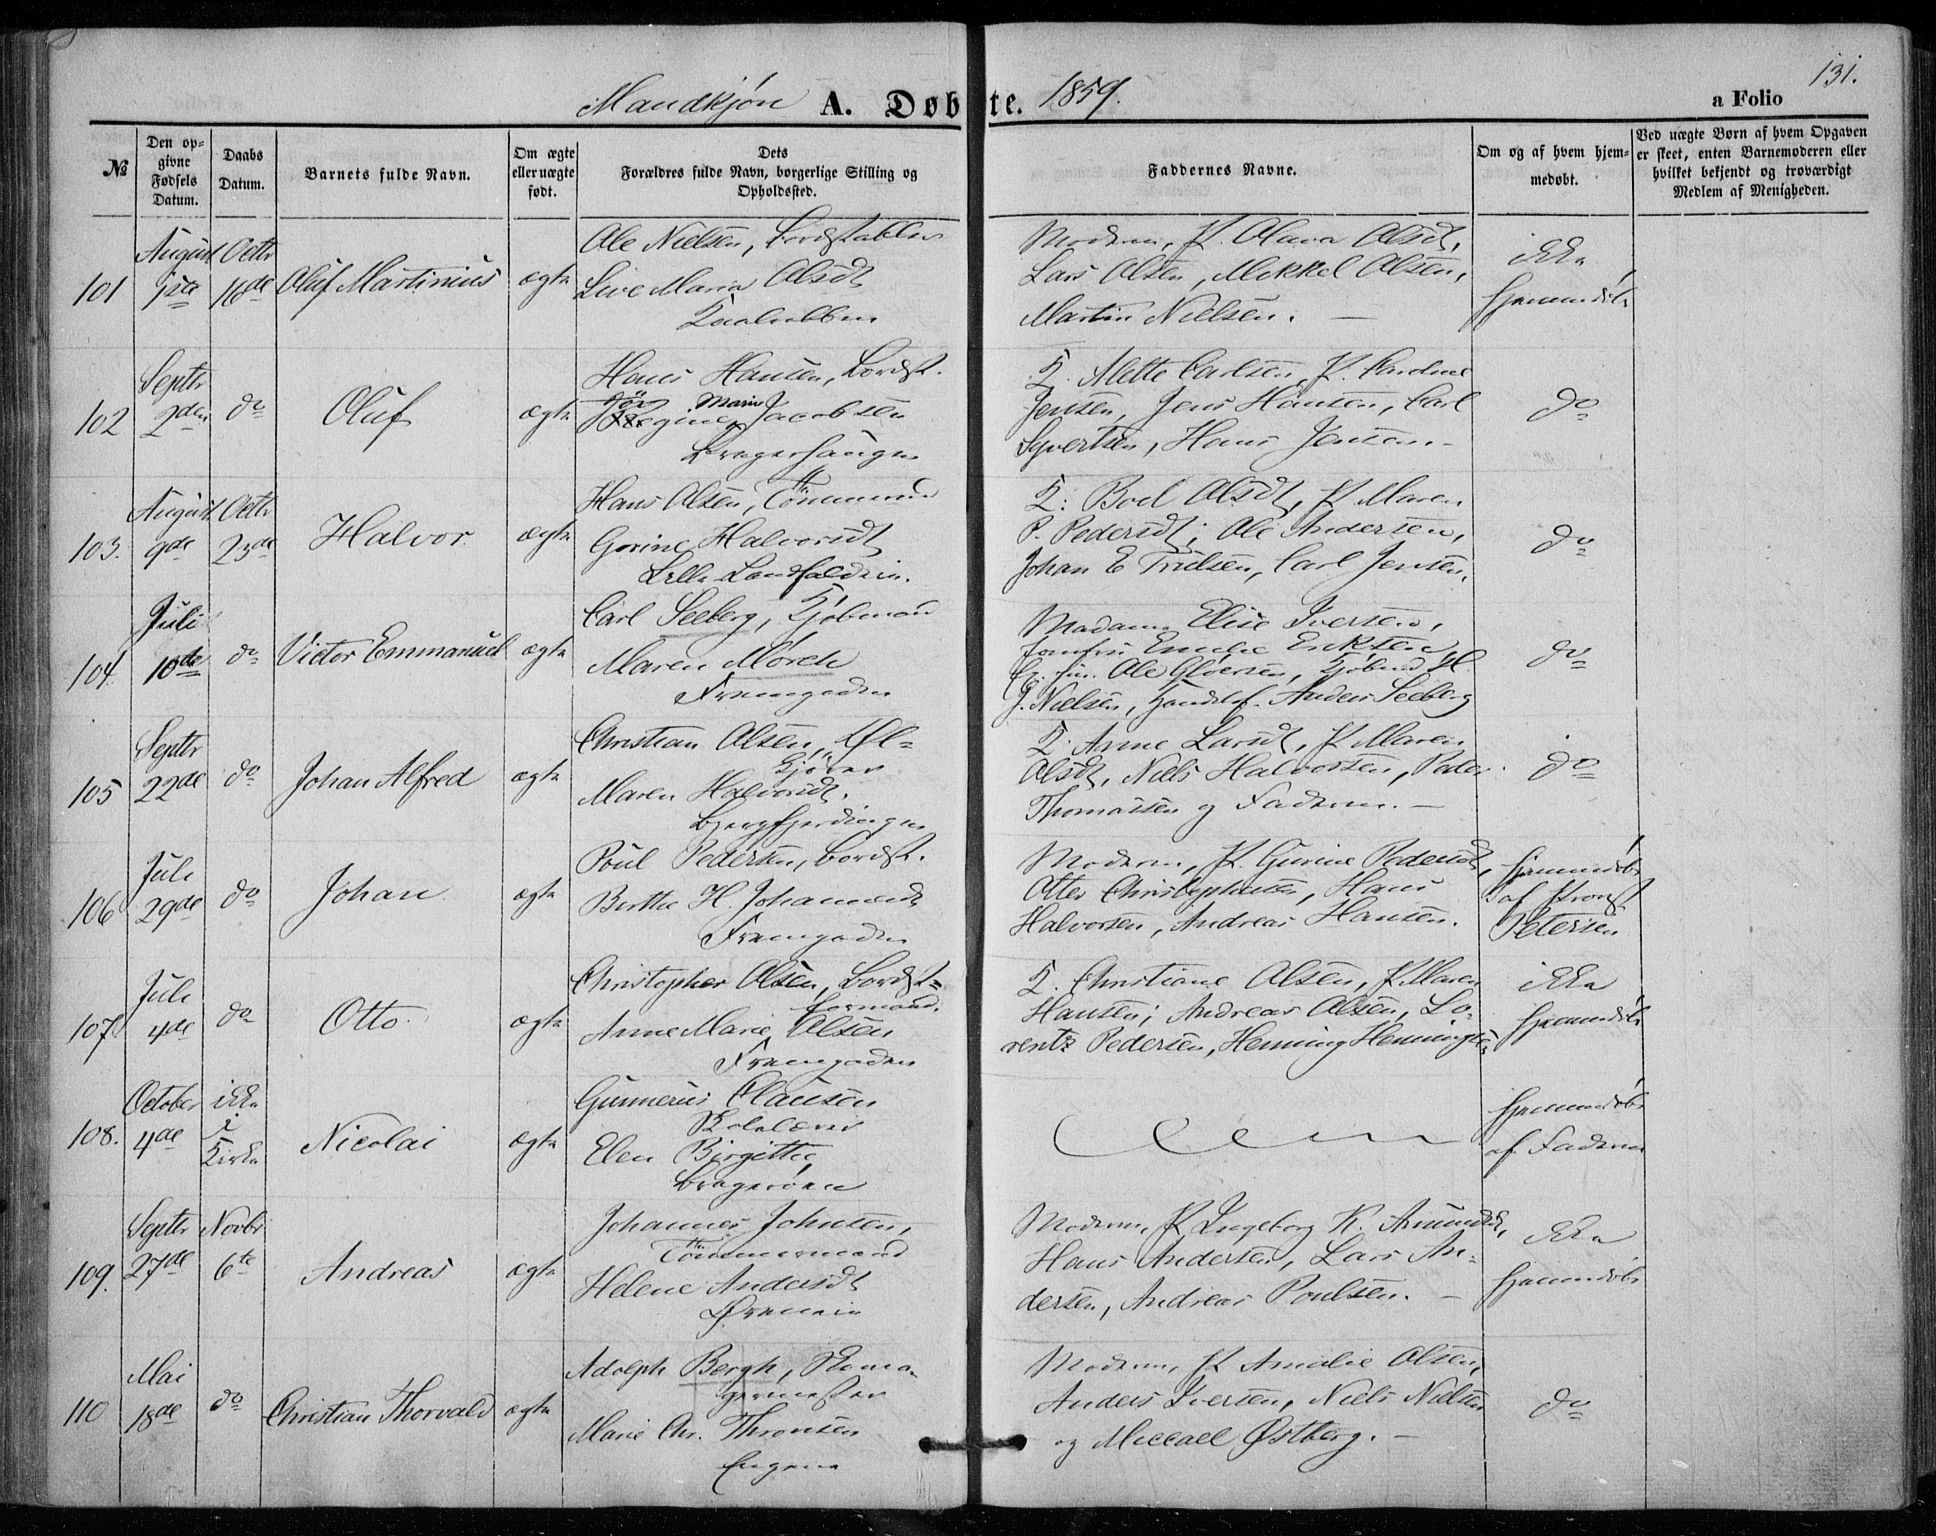 Mandkjøn A. Døbte. 1859. a Folio 131.
№
Den opgivne Fødsels Datum.
Daabs Datum.
Barnets fulde Navn.
Om ægte eller uægte født.
Dets Forældres fulde Navn, borgerlige Stilling og Opholdssted.
Faddernes Navne.
Om og af hvem hjemmedøbt.
Ved uægte Børn af hvem Opgaven er skeet, enten Barnemoderen eller hvilket bekjendt og troværdigt Medlem af Menigheden.
101
August 1ste
Octbr 16de
Oluf Martinius
ægte
Ole Nielsen, Bordstabler
Live Maria Olsdt
Moderen, P. Olava Olsdt,
Lars Olsen, Mikkel Olsen,
Martin Nielsen. —
ikke
hjemmedøbt
102
Septbr 2den
do
Oluf
ægte
Hans Hansen, Bordst.
Jörgine Marie Jacobsen
Bragerhaugen
K. Mette Carlsen, P. Caroline
Jensen, Jens Hansen, Carl
Syvertsen, Hans Jensen. –
do
103.
August 9de
Octbr 23de
Halvor.
ægte
Hans Olsen, Tömmermd
Gorine Halvorsdt
Lille Landfaldöien.
K: Boel Olsdt, P. Maren
P. Pedersdt; Ole Andersen,
Johan E Trulsen, Carl Jensen.
do
104.
Juli 10de
do
Victor Emmanuel
ægte
Carl Seeberg, Kjöbmand
Maren Mörch
Fremgaden
Madame Elise Iversen,
Jomfru Emilie Eriksen,
Ole Gløersen, Kjöbmd H.
J. Nielsen, Handelsf. Anders Seeberg
do
105
Septbr 22de
do
Johan Alfred
ægte
Christian Olsen, Øl=
Kjörer
Maren Halvorsdt.
Bjergfjerdingen
K. Anne Larsdt, P. Maren
Olsdt, Niels Halvorsen, Peder
Thomassen og Faderen. —
do
106
Juli 29de
do
Johan.
ægte
Poul Pedersen, Bordst.
Berthe H. Johannesdt
Fremgaden
Moderen, P. Gurine Pedersdt,
Otter Christophersen, Hans
Halvorsen, Andreas Hansen.
hjemmedøbt
af Provst
Petersen
107
Juli 4de
do
Otto.
ægte
Christopher Olsen, Bordst=
formand.
Anne Marie Olsen
Fremgaden
K. Christiane Olsen, P. Maren
Hansen; Andreas Olsen, Lo-
rentz Pedersen, Henning Henningsen
ikke
hjemmedøbt
108.
October 4de
ikke i Kirke
Nicolai
ægte
Gunnerius Clausen
Skolelærer
Elen Birgitte
Bragerøen
hjemmedøbt
af Faderen
109.
Septbr 27de
Novbr 6te
Andreas
ægte
Johannes Johnsen,
Tömmermand
Helene Andersdt
Øreneie
Moderen, P. Ingeborg K. Amundsdt,
Hans Andersen, Lars An-
dersen, Andreas Poulsen. –
ikke
hjemmedøbt
110
Mai 18de
do
Christian Thorvald
ægte
Adolph Bergh, Skoma-
germester
Marie Chr. Thronsen
Engene
Moderen, P. Amalie Olsen,
Anders Iversen, Niels Nielsen
og Michael Østberg. –
do